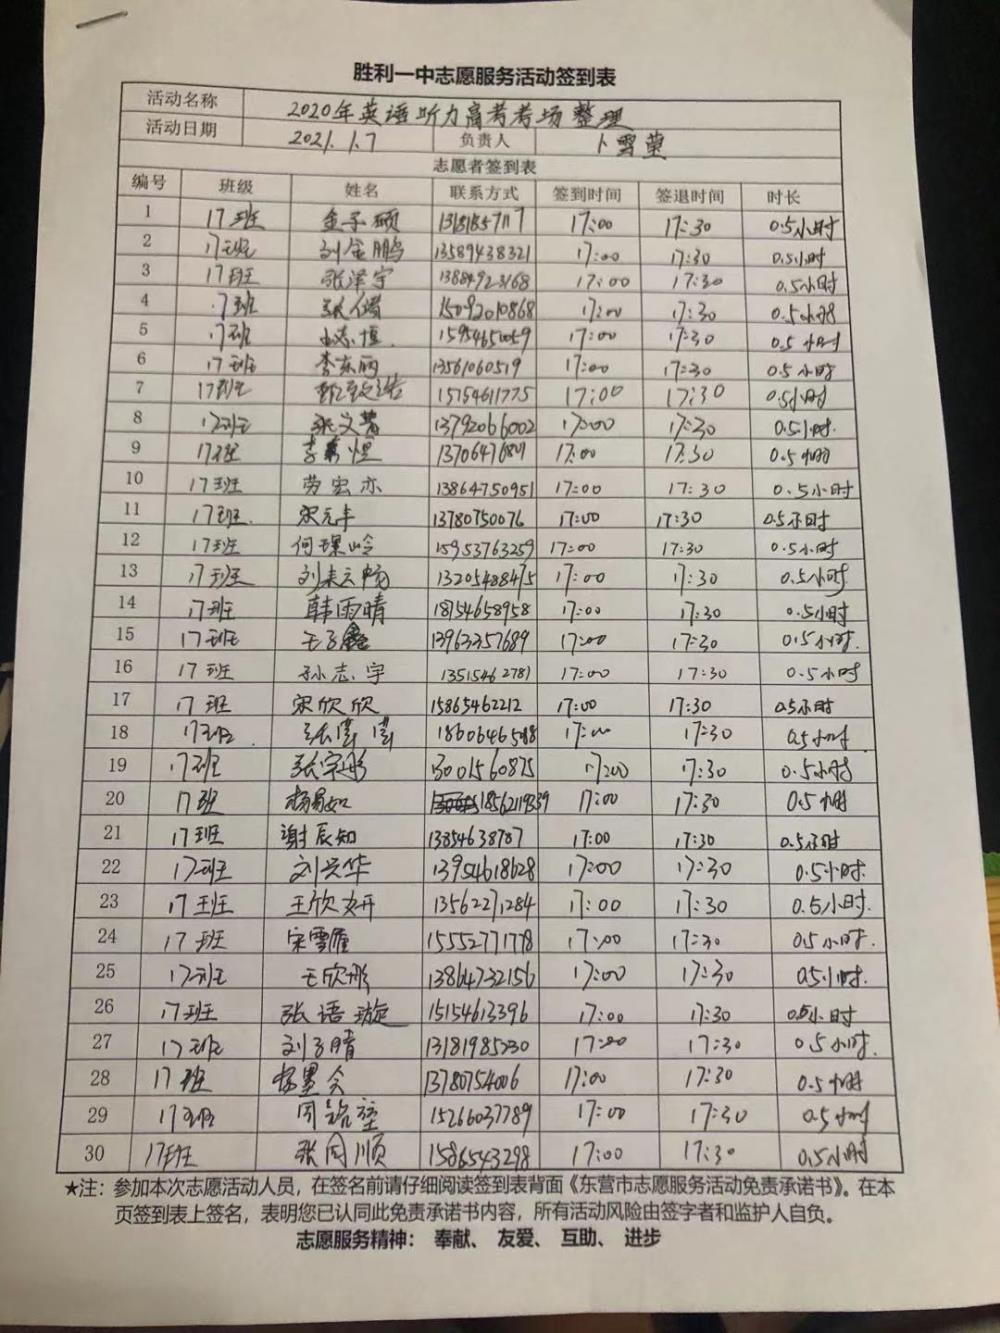 胜利一中志愿服务活动签到表
活动名称 2020年英语听力高考考场整理
活动日期 2021.1.7 负责人 卜雪莹
志愿者签到表
编号 班级 姓名 联系方式 签到时间 签退时间 时长
1 17班 金子硕 17:00 17:30 0.5小时
2 17班 刘金鹏 13589438321 17:00 17:30 0.5小时
3 17班 张泽宇 13884923168 17:00 17:30 0.5小时
4 17班 15092010868 17:00 17:30 0.5小时
5 17班 17:00 17:30 0.5小时
6 17班 李东丽 13561060519 17:00 17:30 0.5小时
7 17班 15754611775 17:00 17:30 0.5小时
8 17班 张文菁 13792066002 17:00 17:30 0.5小时
9 17班 17:00 17:30 0.5小时
10 17班 劳宏亦 13864750951 17:00 17:30 0.5小时
11 17班 宋元丰 13780750076 17:00 17:30 0.5小时
12 17班 15953763259 17:00 17:30 0.5小时
13 17班 13205488475 17:00 17:30 0.5小时
14 17班 韩雨晴 18754658958 17:00 17:30 0.5小时
15 17班 王子鑫 13963357689 17:00 17:30 0.5小时
16 17班 孙志宇 13515462781 17:00 17:30 0.5小时
17 17班 宋欣欣 15865462212 17:00 17:30 0.5小时
18 17班 17:00 17:30 0.5小时
19 17班 张宗彤 13001560875 17:00 17:30 0.5小时
20 17班 杨易如 17:00 17:30 0.5小时
21 17班 谢辰知 13854638787 17:00 17:30 0.5小时
22 17班 刘兴华 13954618628 17:00 17:30 0.5小时
23 17班 王欣妍 13562271284 17:00 17:30 0.5小时
24 17班 宋雪雁 15552771778 17:00 17:30 0.5小时
25 17班 王欣彤 13864732156 17:00 17:30 0.5小时
26 17班 张语璇 15154613396 17:00 17:30 0.5小时
27 17班 刘子晴 13181985230 17:00 17:30 0.5小时
28 17班 13780754006 17:00 17:30 0.5小时
29 17班 15266037789 17:00 17:30 0.5小时
30 17班 张同顺 15865543298 17:00 17:30 0.5小时
★注：参加本次志愿活动人员，在签名前请仔细阅读签到表背面《东营市志愿服务活动免责承诺书》。在本
页签到表上签名，表明您已认同此免责承诺书内容，所有活动风险由签字者和监护人自负。
志愿服务精神： 奉献、 友爱、 互助、 进步